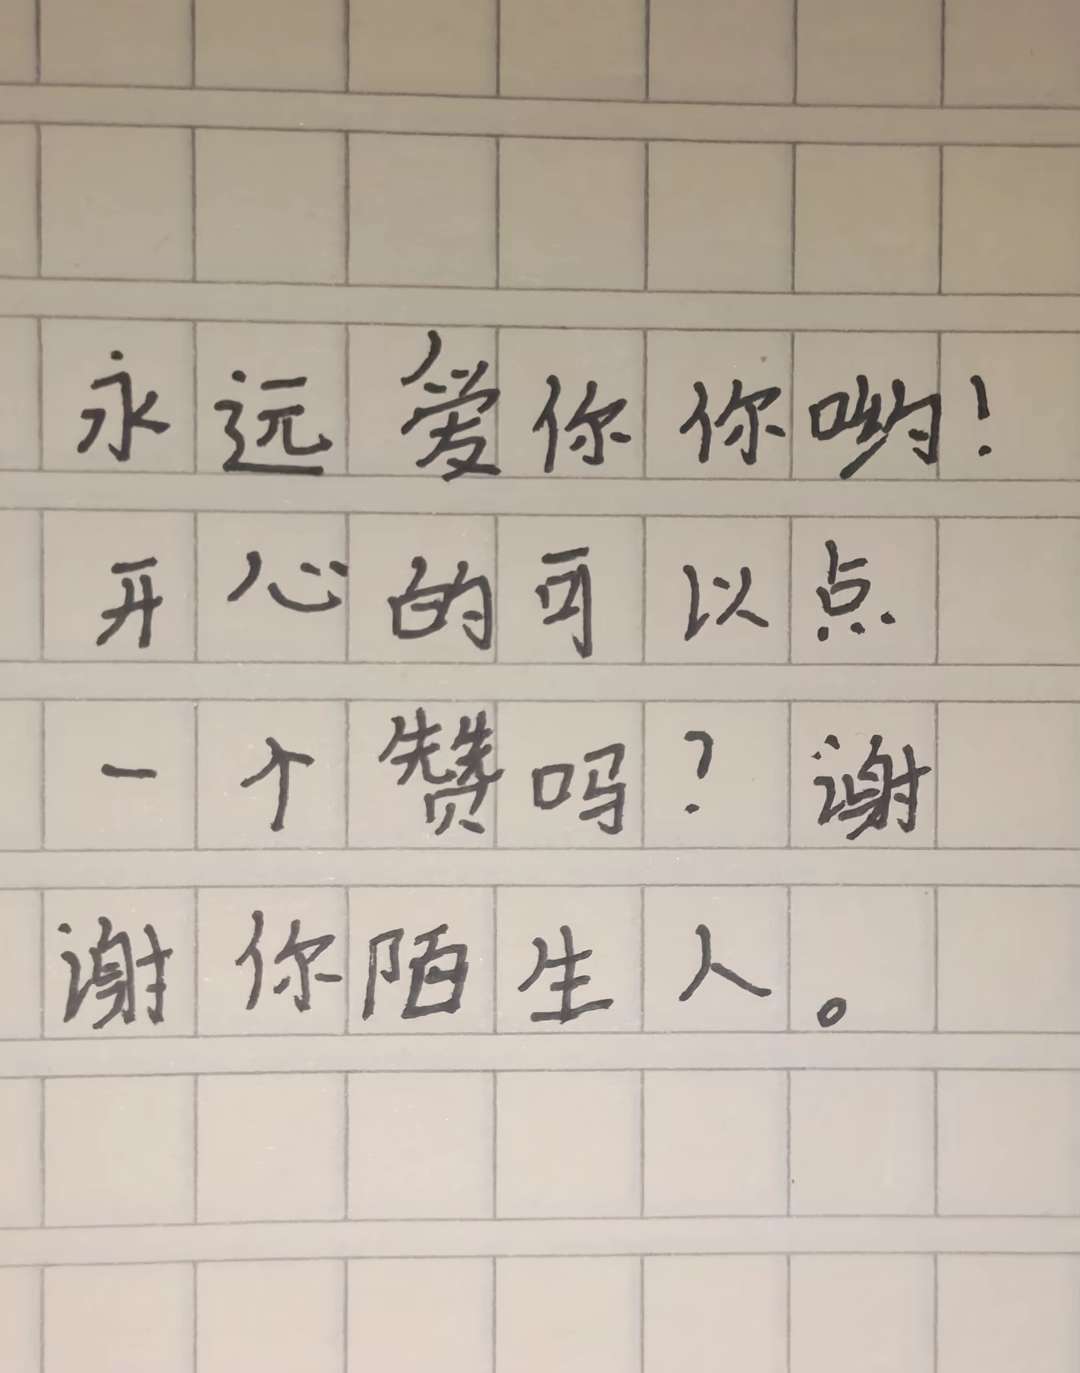 永远爱你你哟！
开心的可以点
一个赞吗？谢
谢你陌生人。